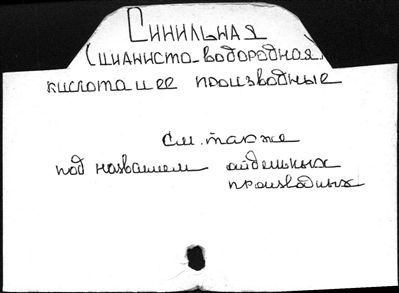 Синильная
(цианисто-водородная)
кислота и ее производные
См. также
под названием отдельных
производных